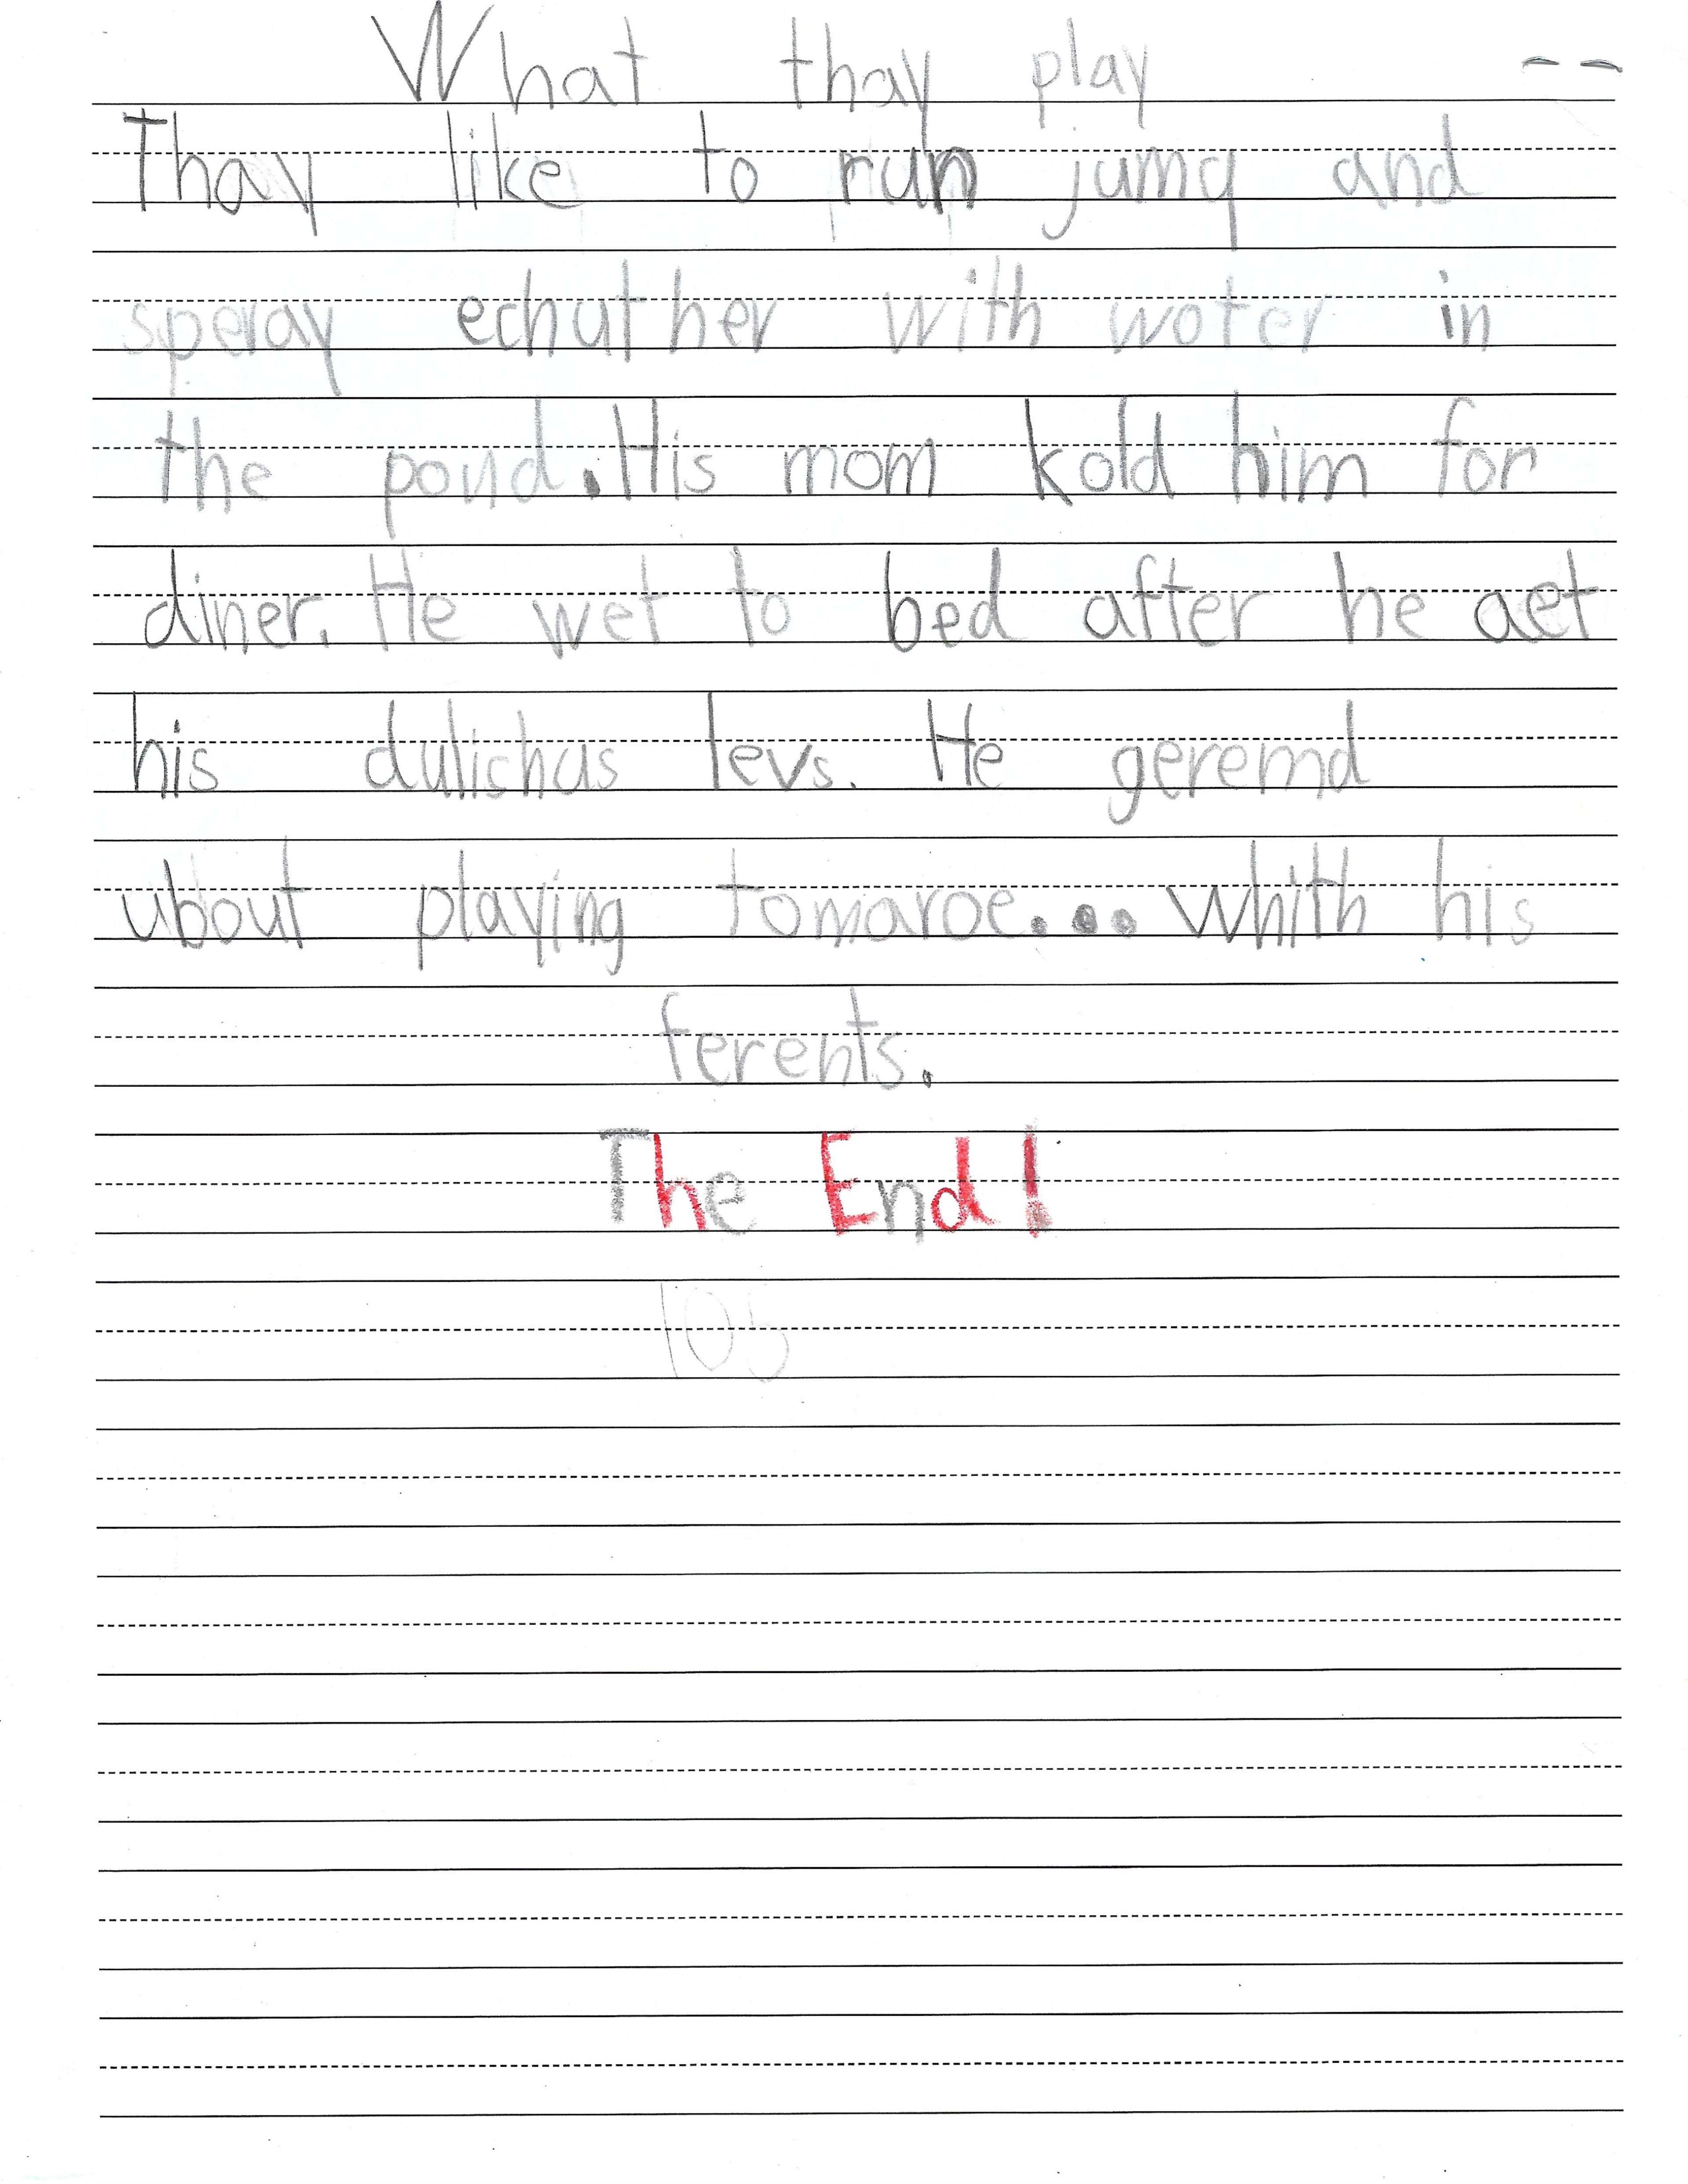 What thay play
Thay like to run jumq and
speray echuther with woter in
the pond. His mom kold him for
diner. He wet to bed after he aet
his dulichus levs. He geremd
ubout playing tomaroe... whith his
ferents.
The End!